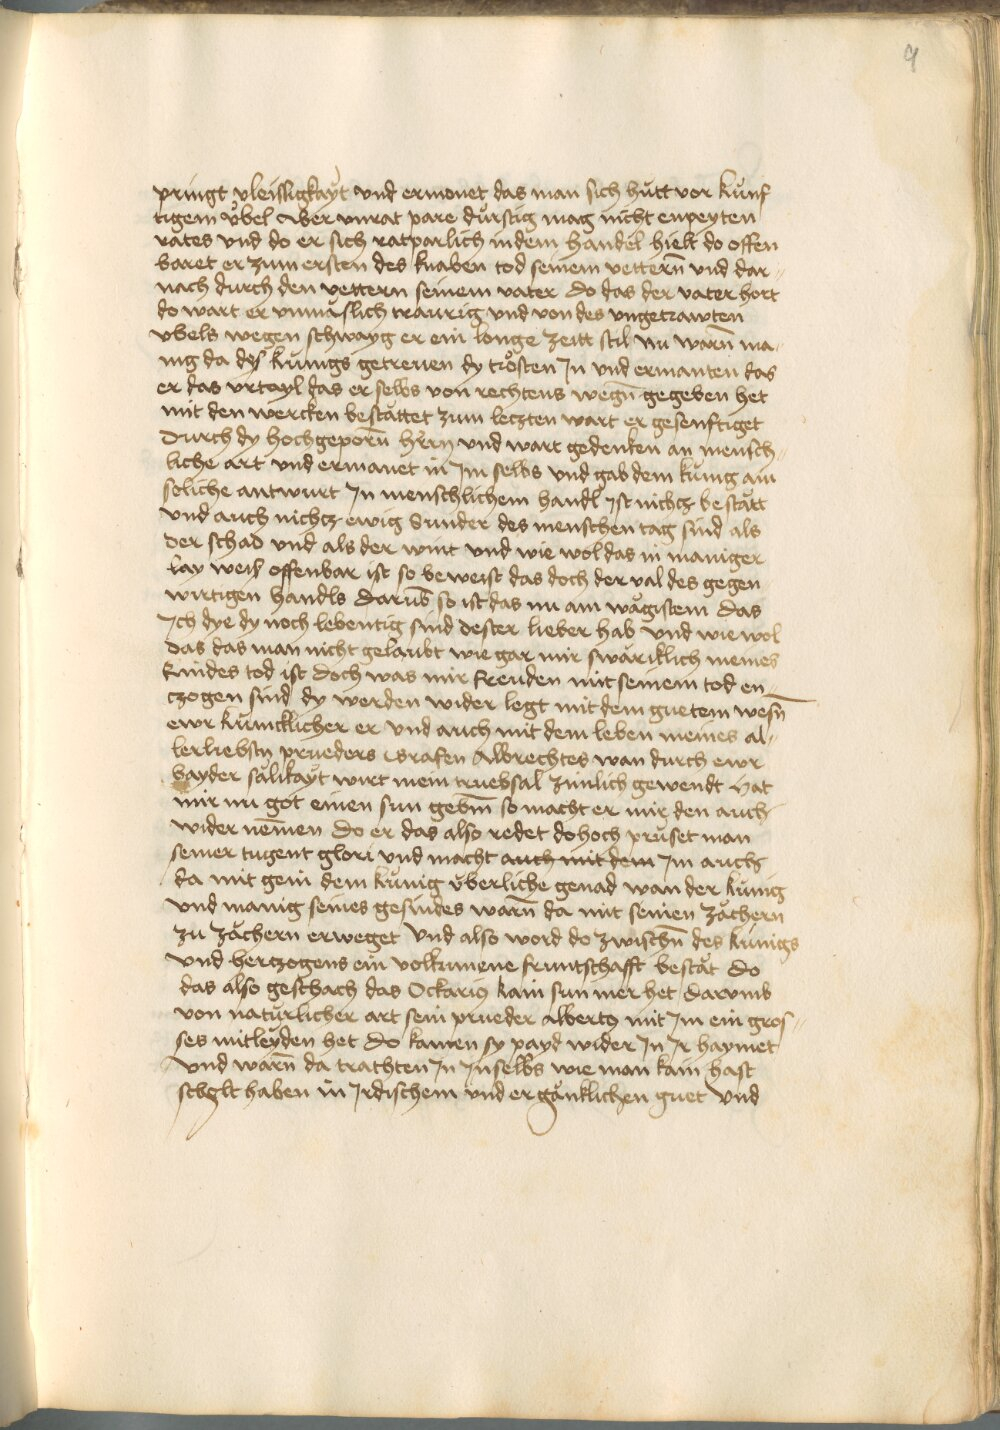 9
pringt vleissigkayt vnd ermonet das man sich hütt vor künf
tigem übel Aber vnrat pare dürstig mag nicht enpeyten
rates vnd do er sich ratparlich in dem handel hielt do offen
baret er zum ersten des knaben tod seinem vettern̄ vnd dar-
nach durch den vettern seinem vater Do das der vater hort
do wart er vnmäslich traurig vnd von des vngetrawten
vbels wegen schwayg er ein longe zeitt stil Nu warn̄ ma-
nig da des kunigs getreuen dy trösten Jn vnd ermanten das
er das vrtayl das er selbs von rechtens wegn̄ gegeben het
mit den wercken bestättet zum leczten wart er gesenftiget
durch dy hochgeporn̄ hern̄ vnd wart gedenken an mensch-
liche art vnd ermanet in Jm selbs vnd gab dem kunig ain
soliche antwurt Jn menschlichem handl Jst nichcz bestätt
vnd auch nichcz ewig Sunder des menschen tag sind als
der schad vnd als der wint vnd wie wol das in maniger
lay weis offenbar ist so beweist das doch der val des gegen
wirtigen handls Darūb so ist das nu am wägistem das
Jch dye dy noch lebentig sind dester lieber hab vnd wie wol
das das man nicht gelaubt wie gar mir swäriklich meines
kindes tod ist Doch was mir freuden mit seinem tod en-
czogen sind dy werden wider legt mit dem guetem wesn̄
ewr küncklicher er vnd auch mit dem leben meines al-
lerliebstn̄ prueders Grafen Albrechtes wan durch ewr
bayder sälikayt wirt mein truebsal zimlich gewendt hat
mir nu got einen sun gebm̄ so macht er mir den auch
wider nem̄en Do er das also redet do hoch prüset man
seiner tugent glori vnd macht auch mit dem Jm auch
da mit gein dem künig überliche genad wan der künig
vnd manig seines gesindes warn̄ da mit seinen zächern
zu zächern erweget Vnd also word do zwischn̄ des künigs
vnd herczogens ein volkumene fruntschafft bestät Do
das also geschach das Ockarig kain sun mer het darumb
von natürlicher art sein prueder Albertg mit Jm ein gros-
ses mitleyden het Do kamen sy payd wider Jn Jr haymet
vnd warn̄ da trachten Jn Jn selbs wie man kain hast
scholt haben in Jrdischem vnd ergänklichen guet Vnd